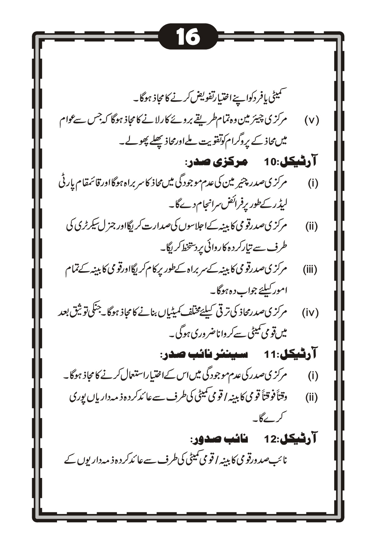 16
کمیٹی یا فرد کو اپنے اختیار تفویض کرنے کا مجاز ہوگا۔
(v) مرکزی چیئرمین وہ تمام طریقے بروئے کار لانے کا مجاز ہوگا کہ جس سے عوام
میں محاذ کے پروگرام کو تقویت ملے اور محاذ پھلے پھولے۔
آرٹیکل:10 مرکزی صدر:
(i) مرکزی صدر چئیرمین کی عدم موجودگی میں محاذ کا سربراہ ہوگا اور قائمقام پارٹی
لیڈر کے طور پر فرائض سرانجام دے گا۔
(ii) مرکزی صدر قومی کابینہ کے اجلاسوں کی صدارت کریگا اور جنرل سیکرٹری کی
طرف سے تیار کردہ کاروائی پر دستخط کریگا۔
(iii) مرکزی صدر قومی کابینہ کے سربراہ کے طور پر کام کریگا اور قومی کابینہ کے تمام
امور کیلئے جواب دہ ہوگا۔
(iv) مرکزی صدر محاذ کی ترقی کیلئے مختلف کمیٹیاں بنانے کا مجاز ہوگا۔ جنکی توثیق بعد
میں قومی کمیٹی سے کروانا ضروری ہوگی۔
آرٹیکل:11 سینئر نائب صدر:
(i) مرکزی صدر کی عدم موجودگی میں اس کے اختیار استعمال کرنے کا مجاز ہوگا۔
(ii) وقتاً فوقتاً قومی کابینہ / قومی کمیٹی کی طرف سے عائد کردہ ذمہ داریاں پوری
کرے گا۔
آرٹیکل:12 نائب صدور:
نائب صدور قومی کابینہ / قومی کمیٹی کی طرف سے عائد کردہ ذمہ داریوں کے